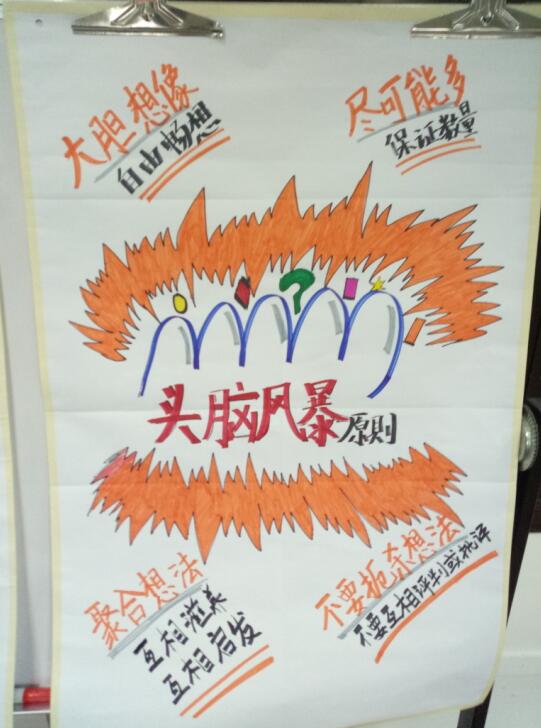 大胆想像
自由畅想
尽可能多
保证数量
头脑风暴原则
聚合想法
互相滋养
互相启发
不要扼杀想法
不要互相评判或批评